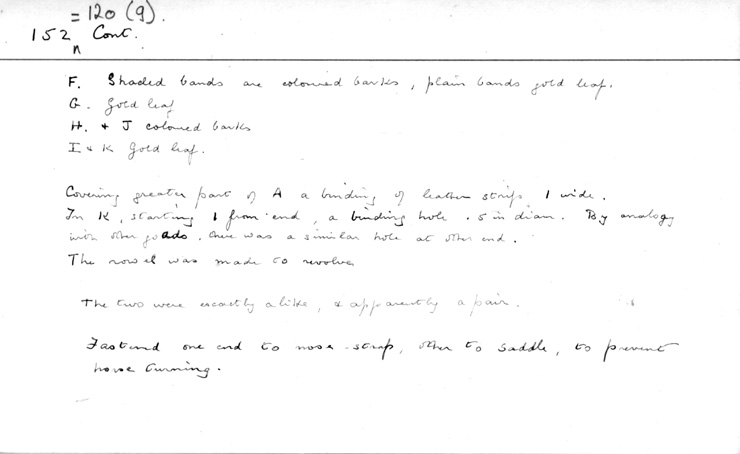 = 120 (9).
152 n Cont.
F. Shaded bands are coloured barks, plain bands gold leaf.
G. Gold leaf
H. + J coloured barks
I & K Gold leaf.
Covering greater part of A a binding of leather strips 1 wide.
In K, starting 1 from end, a binding hole .5 in diam. By analogy
with other goads, there was a similar hole at other end.
The rowel was made to revolve
The two were exactly alike, & apparently a pair.
Fastened one end to nose-strap, other to saddle, to prevent
horse turning.